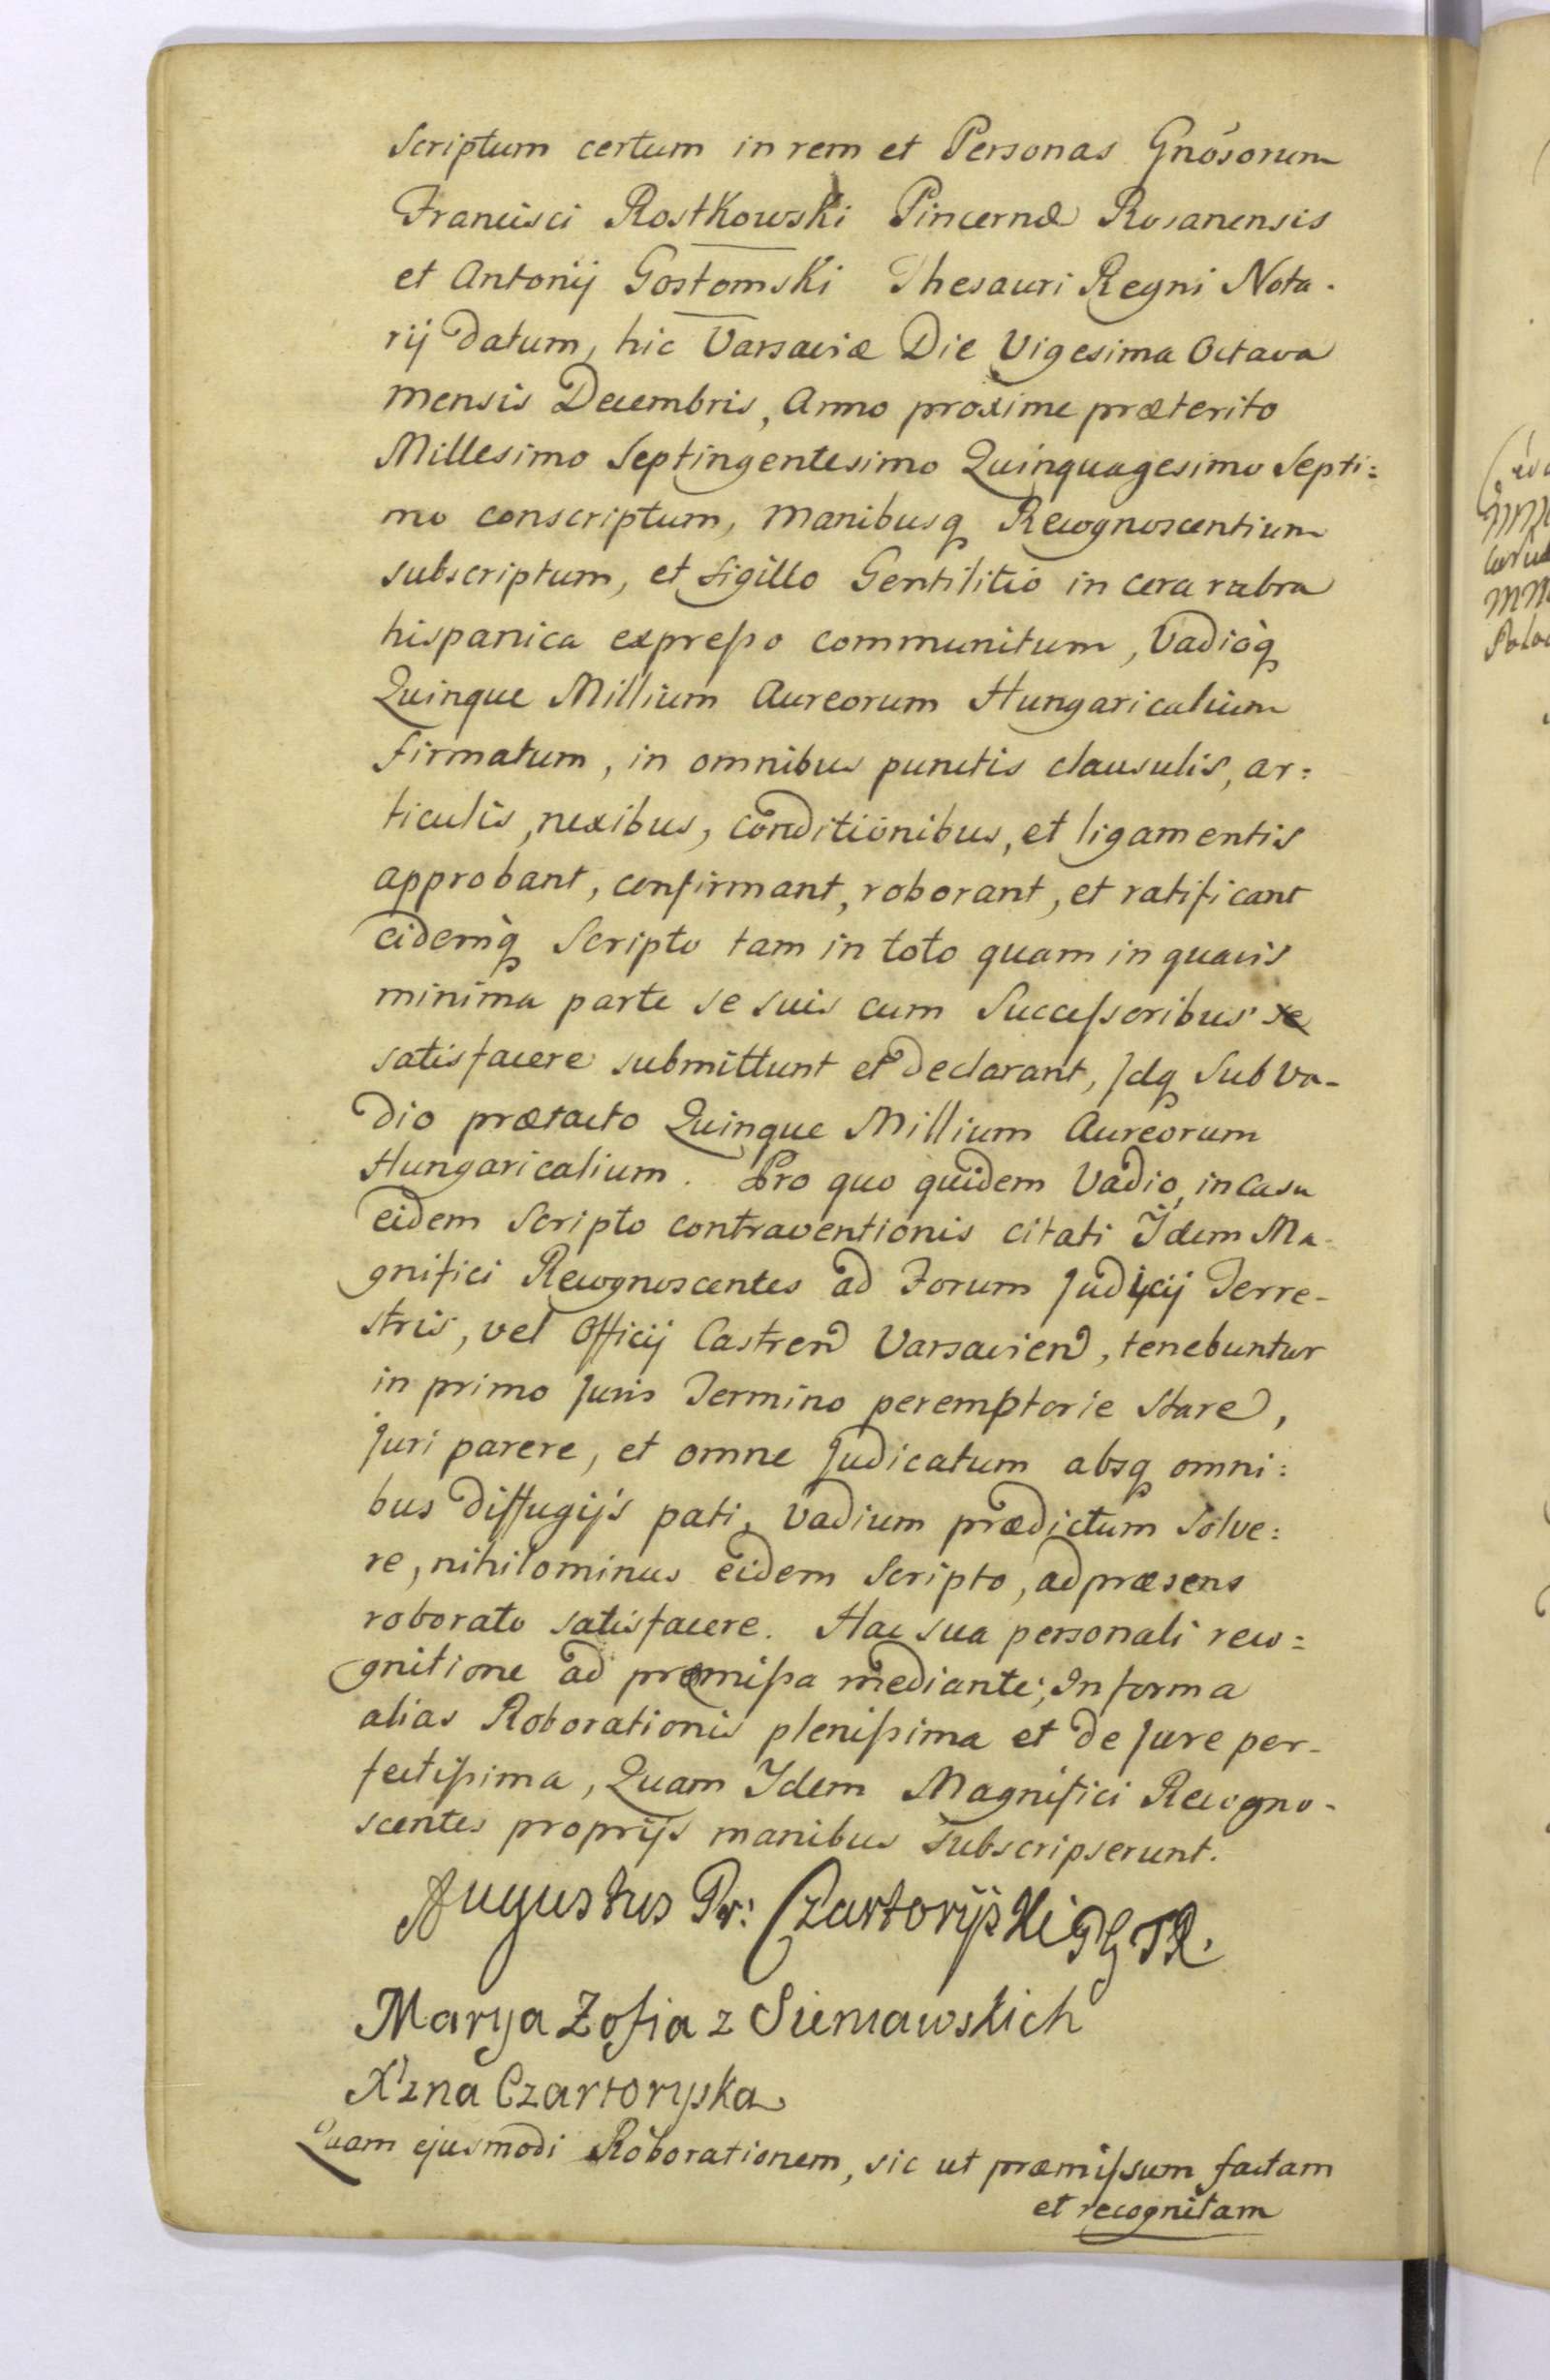 Scriptum certum in rem et Personas Gnosorum
Francisci Rostkowski Pincernæ Rosanensis
et Antonij Gostomski Thesauri Regni Nota.
rij datum, hic Varsaviæ Die Vigesima Octava
mensis Decembris, Anno proxime præterito
Millesimo Septingentesimo Quinquagesimo Septi:
mo conscriptum, manibusq Recognoscentium
subscriptum, et sigillo Gentilitio in cera rubra
hispanica expreſso communitum, Vadioq
Quinque Millium Aureorum Hungaricalium
firmatum, in omnibus punctis clausulis, ar:
ticulis, nexibus, conditionibus, et ligamentis
approbant, confirmant, roborant, et ratificant
eidemq Scripto tam in toto quam in quavis
minima parte se suis cum Succeſsoribus se
satisfacere submittunt et declarant, Idq Sub Va-
dio prætacto Quinque Millium Aureorum
Hungaricalium. Pro quo quidem Vadio, in Casu
eidem Scripto contraventionis citati Ijdem Ma-
gnifici Recognoscentes ad Forum Judicij Terre-
stris, vel Officij Castren Varsavien, tenebuntur
in primo Juris Termino peremptorie Stare,
Juri parere, et omne Judicatum absq omni:
bus diffugijs pati, Vadium prædictum Solve:
re, nihilominus eidem Scripto, ad præsens
roborato satisfacere. Hac sua personali reco:
gnitione ad præmiſsa mediante; In forma
alias Roborationis pleniſsima et de Jure per-
fectiſsima, Quam Idem Magnifici Recogno-
scentes proprijs manibus subscripserunt.
Augustus Pr: Czartoryski PGTR.
Marya Zofia z Sieniawskich
X'zna Czartoryska
Quam ejusmodi Roborationem, sic ut præmiſsum factam
et recognitam